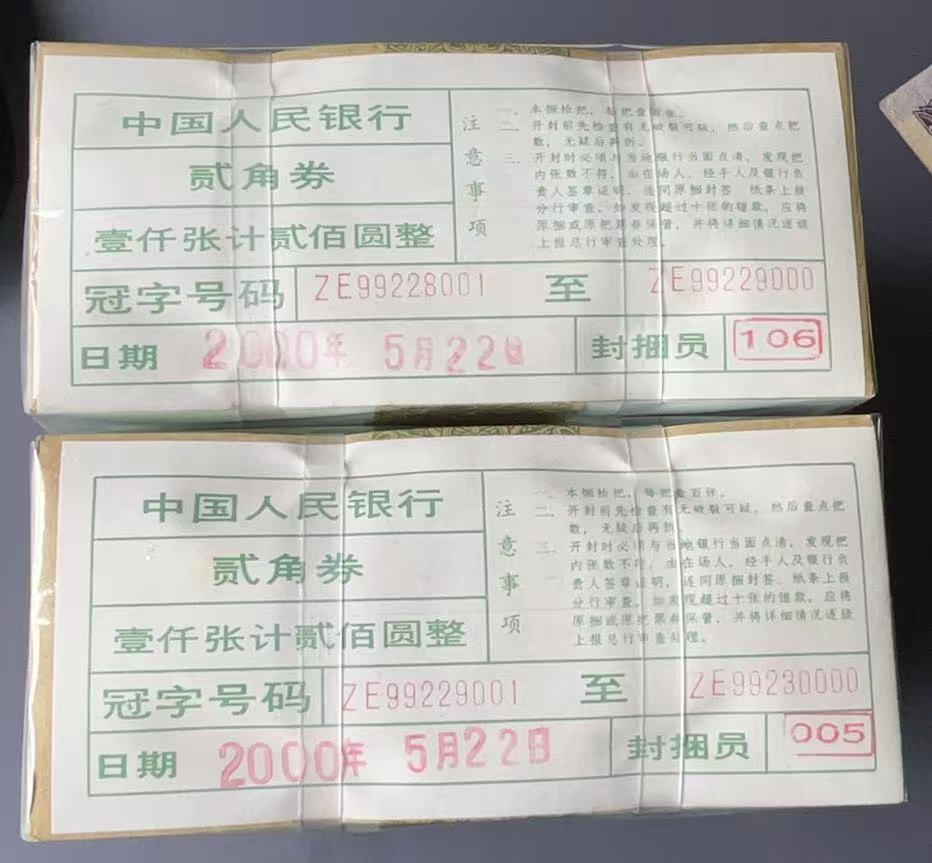 中国人民银行
贰角券
壹仟张计贰佰圆整
注意事项
一、本捆拾把，每把壹百张。
二、开封前先检查有无破裂可疑，然后查点把
数，无疑后再拆。
三、开封时必须与当地银行当面点清，发现把
内张数不符，由在场人、经手人及银行负
责人签章证明，连同原捆封签、纸条上报
分行审查。如发现超过十张的错款，应将
原捆或原把票券保管，并将详细情况逐级
上报总行审查处理。
冠字号码 ZE99228001 至 ZE99229000
日期 2000年 5月22日 封捆员 106
中国人民银行
贰角券
壹仟张计贰佰圆整
注意事项
一、本捆拾把，每把壹百张。
二、开封前先检查有无破裂可疑，然后查点把
数，无疑后再拆。
三、开封时必须与当地银行当面点清，发现把
内张数不符，由在场人、经手人及银行负
责人签章证明，连同原捆封签、纸条上报
分行审查。如发现超过十张的错款，应将
原捆或原把票券保管，并将详细情况逐级
上报总行审查处理。
冠字号码 ZE99229001 至 ZE99230000
日期 2000年 5月22日 封捆员 005